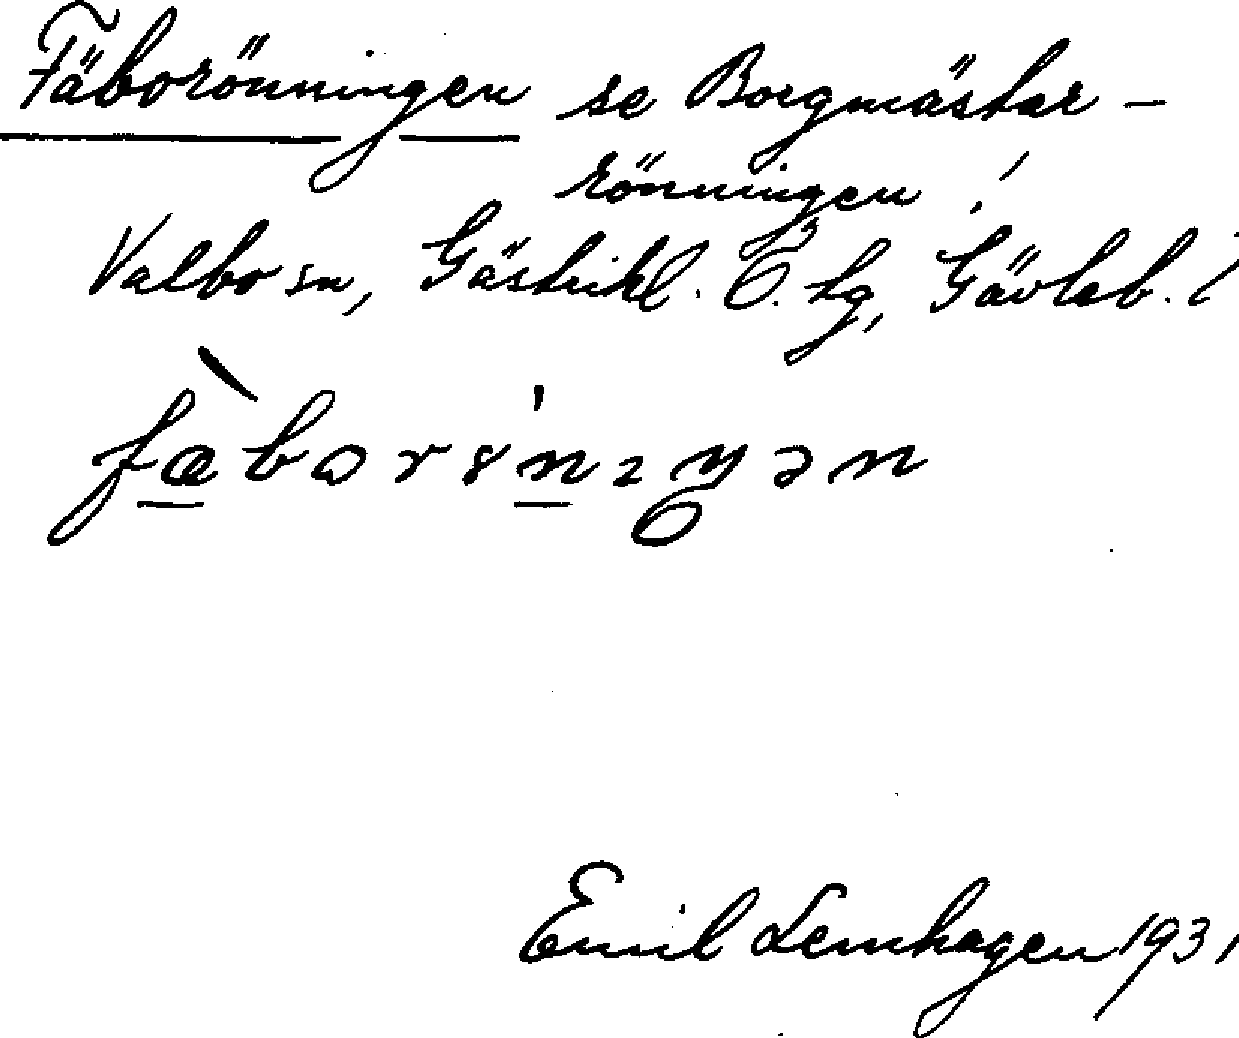 Fäborönningen se Borgmästar-
rönningen!
Valbo sn, Gästrikl. Ö. tg, Gävleb. l
Emil Lemhagen 1931